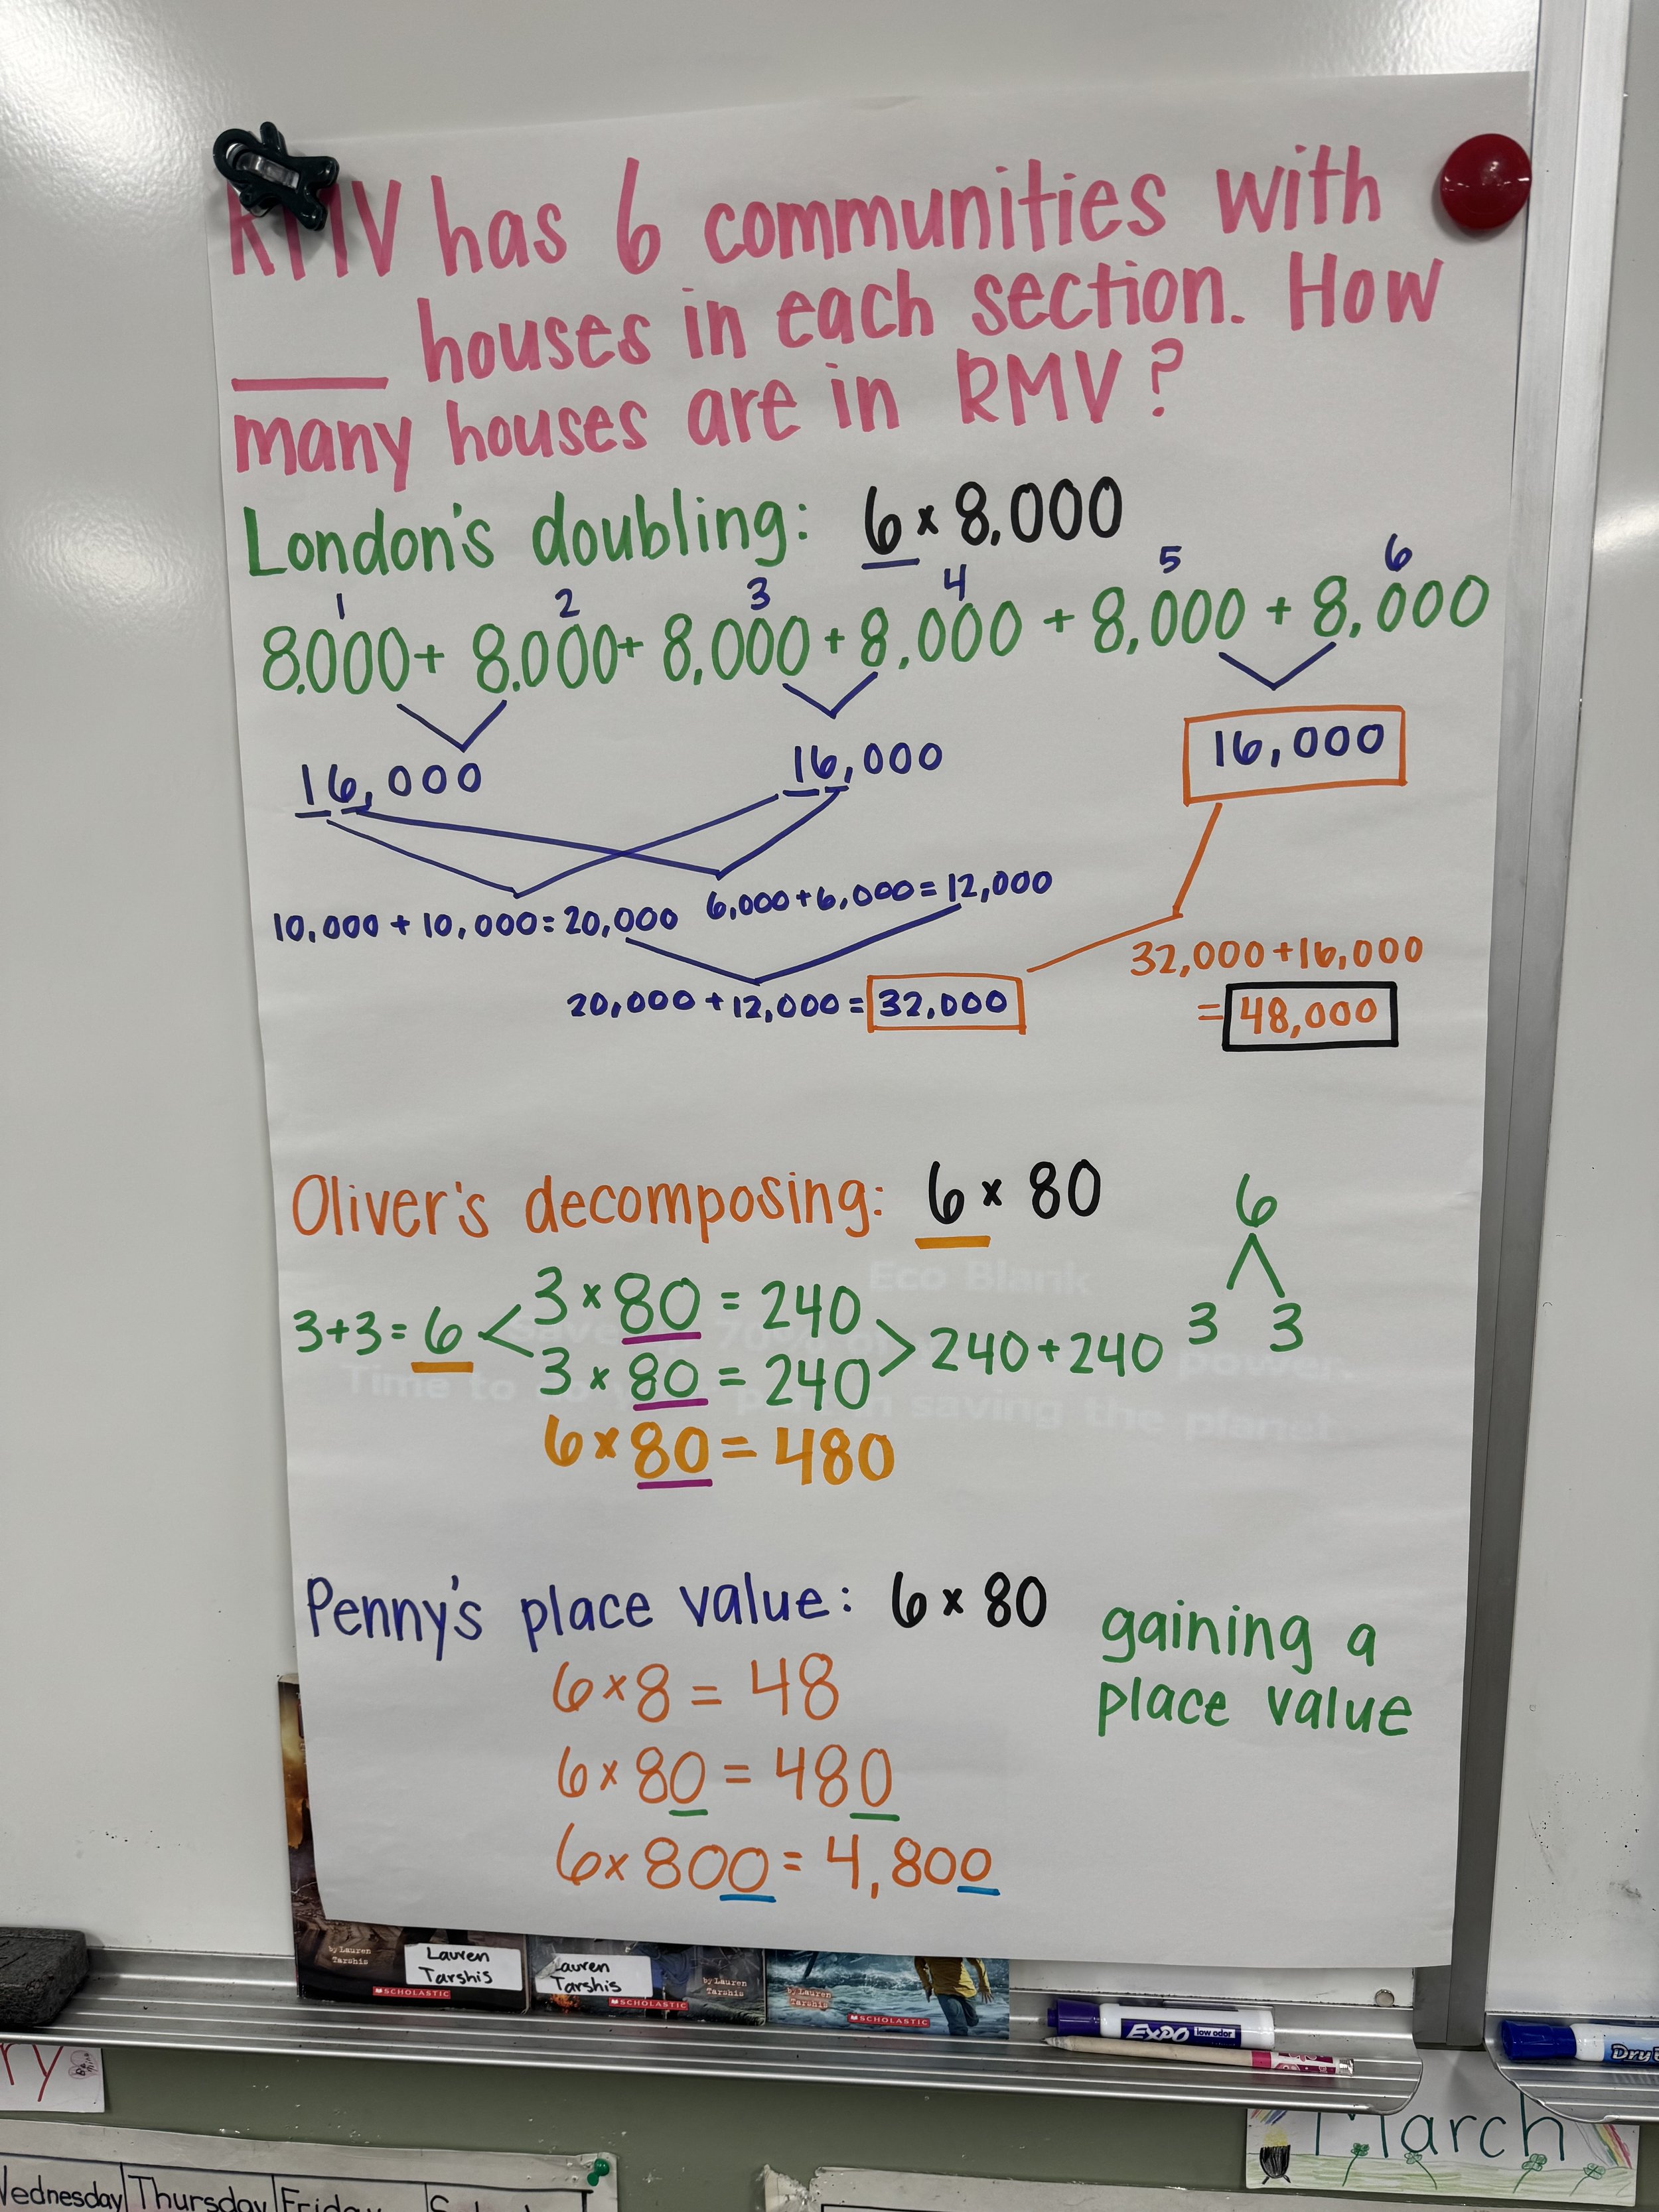 RMV has 6 communities with
___ houses in each section. How
many houses are in RMV?
London's doubling: 6 × 8,000
1 2 3 4 5 6
8,000 + 8,000 + 8,000 + 8,000 + 8,000 + 8,000
16,000 16,000 16,000
10,000 + 10,000 = 20,000 6,000 + 6,000 = 12,000
32,000 + 16,000
20,000 + 12,000 = 32,000
= 48,000
Oliver's decomposing: 6 × 80
6
3 3
3 × 80 = 240
3 + 3 = 6 < > 240 + 240
3 × 80 = 240
6 × 80 = 480
Eco Blank
Time to
power.
saving the planet.
Penny's place value: 6 × 80
gaining a
place value
6 × 8 = 48
6 × 80 = 480
6 × 800 = 4,800
by Lauren
Tarshis
Lauren
Tarshis
SCHOLASTIC
Lauren
Tarshis
by Lauren
Tarshis
SCHOLASTIC
by Lauren
Tarshis
SCHOLASTIC
EXPO low odor
March
Wednesday Thursday Friday